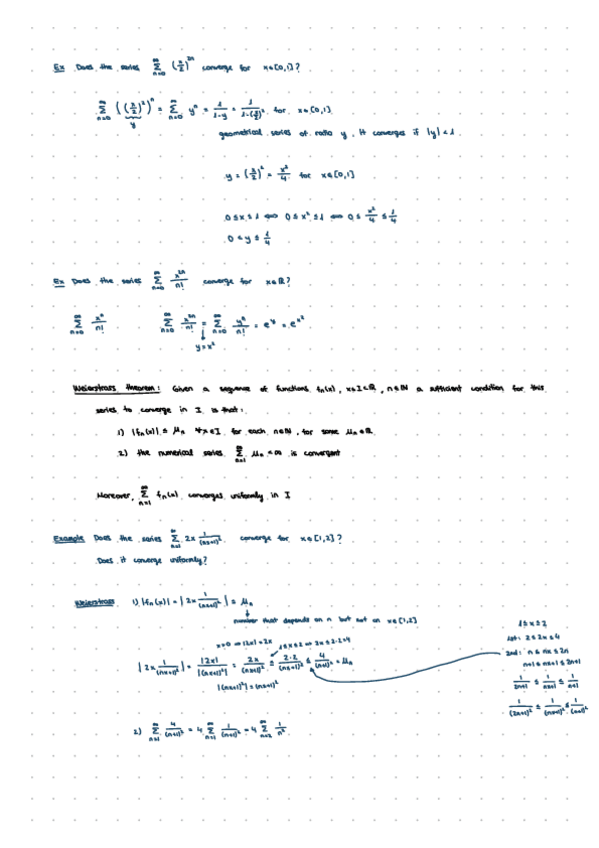 Ex Does the series ∑_{n=0}^{∞} (x/2)^{2n} converge for x∈[0,1]?
∑_{n=0}^{∞} ((x/2)²)ⁿ = ∑_{n=0}^{∞} yⁿ = 1/(1-y) = 1/(1-(x/2)²) for x∈[0,1]
y
geometrical series of ratio y, it converges if |y|<1.
y = (x/2)² = x²/4 for x∈[0,1]
0≤x≤1 ⟺ 0≤x²≤1 ⟺ 0≤ x²/4 ≤ 1/4
0≤y≤ 1/4
Ex Does the series ∑_{n=0}^{∞} x^{2n}/n! converge for x∈ℝ?
∑_{n=0}^{∞} xⁿ/n! ∑_{n=0}^{∞} x^{2n}/n! = ∑_{n=0}^{∞} yⁿ/n! = e^y = e^{x²}
y=x²
Weierstrass theorem: Given a sequence of functions fn(x), x∈I⊂ℝ, n∈ℕ a sufficient condition for this
series to converge in I is that:
1) |fn(x)| ≤ Mn ∀x∈I, for each n∈ℕ, for some Mn∈ℝ
2) the numerical series ∑_{n=1}^{∞} Mn <∞ is convergent
Moreover, ∑_{n=1}^{∞} fn(x) converges uniformly in I
Example Does the series ∑_{n=1}^{∞} 2x 1/(nx+1)² converge for x∈[1,2]?
Does it converge uniformly?
Weierstrass 1) |fn(x)| = |2x 1/(nx+1)²| ≤ Mn
number that depends on n but not on x∈[1,2]
x>0 ⇒ |2x|=2x 1≤x≤2 ⇒ 2x≤2·2=4
|2x 1/(nx+1)²| = |2x|/|(nx+1)²| = 2x/(nx+1)² ≤ 2·2/(nx+1)² ≤ 4/(n+1)² = Mn
|(nx+1)²| = (nx+1)²
1≤x≤2
1st: 2≤2x≤4
2nd: n≤nx≤2n
n+1≤nx+1≤2n+1
1/(2n+1) ≤ 1/(nx+1) ≤ 1/(n+1)
1/(2n+1)² ≤ 1/(nx+1)² ≤ 1/(n+1)²
2) ∑_{n=1}^{∞} 4/(n+1)² = 4 ∑_{n=1}^{∞} 1/(n+1)² = 4 ∑_{n=2}^{∞} 1/n²